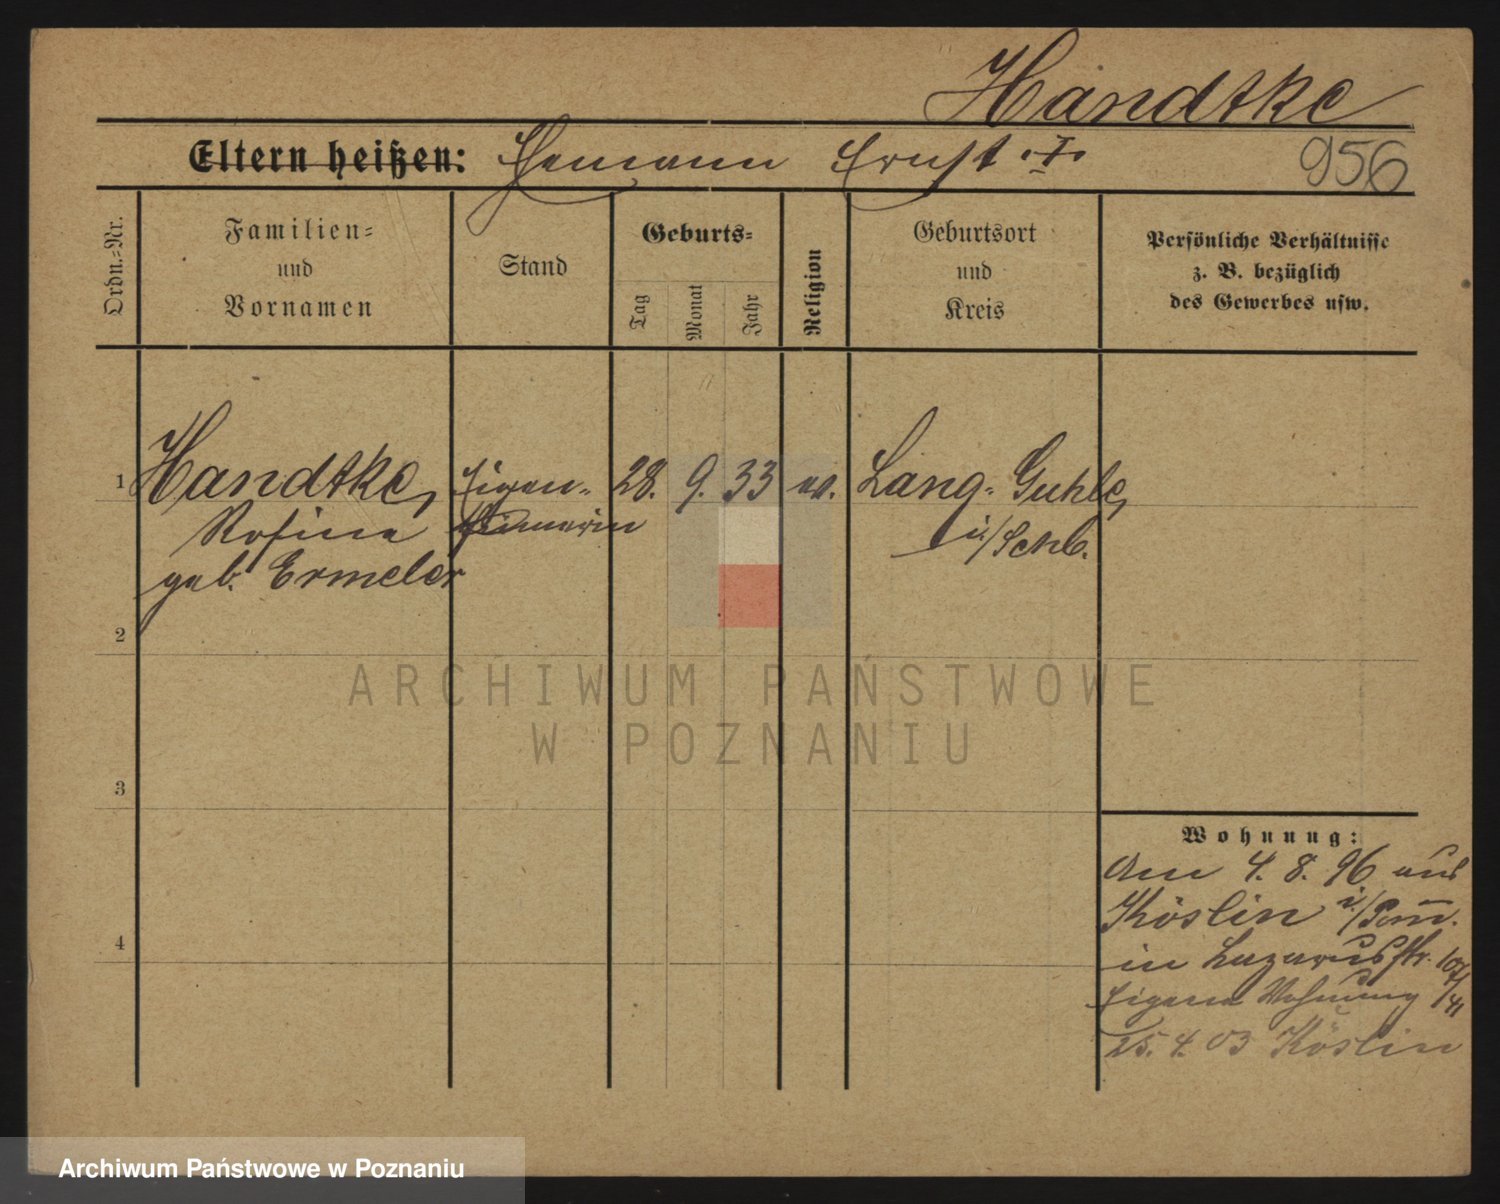 Handtke
Eltern heißen: Hermann Ernst I.
956
Ordn.-Nr.
Familien-
und
Vornamen
Stand
Geburts-
Tag
Monat
Jahr
Religion
Geburtsort
und
Kreis
Persönliche Verhältnisse
z. B. bezüglich
des Gewerbes usw.
1 Handtke, Eigen- 28. 9. 33 ev. Lang-Guhle,
Rosine
geb. Ermeler
i/Schl.
2
3
4
Wohnung:
Am 4. 8. 96 aus
Köslin i/Pom.
in Lazarusstr.
Eigene Wohnung
25. 4. 03 Köslin
ARCHIWUM PAŃSTWOWE
W POZNANIU
Archiwum Państwowe w Poznaniu